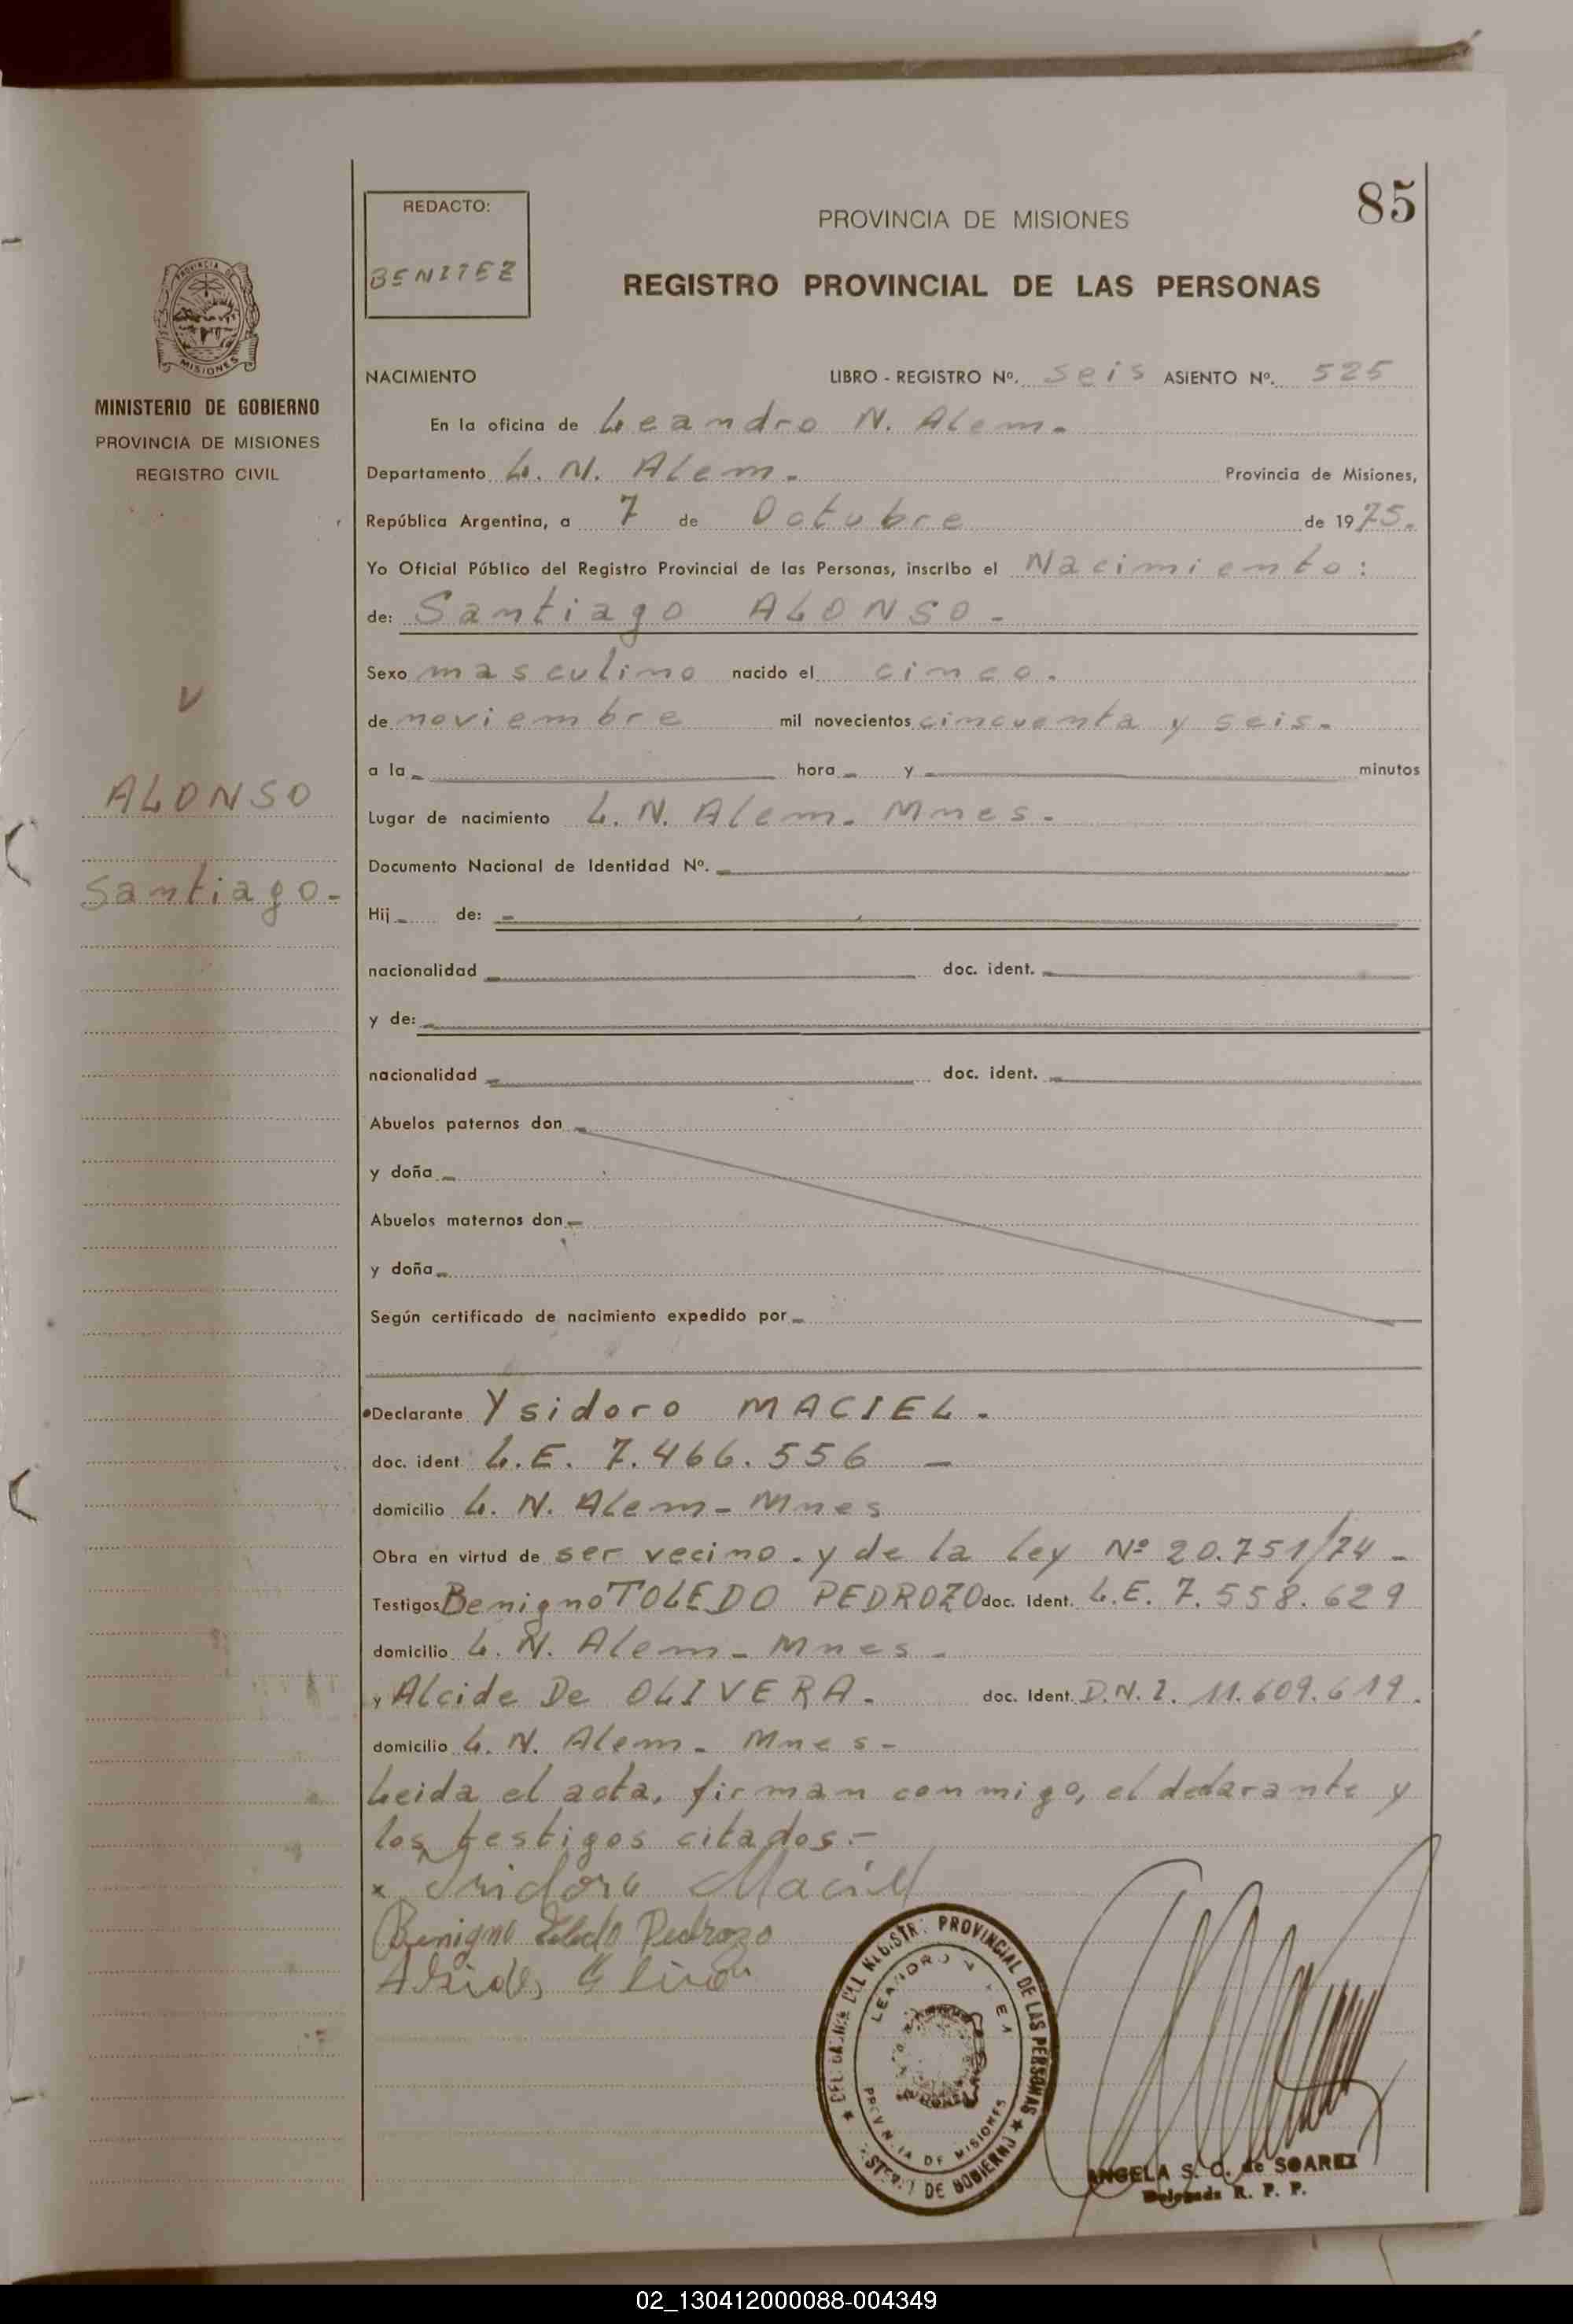 85
REDACTO:
BENITEZ
PROVINCIA DE MISIONES
REGISTRO PROVINCIAL DE LAS PERSONAS
PROVINCIA DE
MISIONES
MINISTERIO DE GOBIERNO
PROVINCIA DE MISIONES
REGISTRO CIVIL
V
ALONSO
Santiago-
NACIMIENTO LIBRO - REGISTRO Nº. seis ASIENTO Nº. 525
En la oficina de Leandro N. Alem.
Departamento L. N. Alem. Provincia de Misiones,
República Argentina, a 7 de Octubre de 1975.
Yo Oficial Público del Registro Provincial de las Personas, inscribo el Nacimiento:
de: Santiago ALONSO-
Sexo masculino nacido el cinco.
de noviembre mil novecientos cincuenta y seis-
a la - hora - y - minutos
Lugar de nacimiento L. N. Alem. Mnes.
Documento Nacional de Identidad Nº. -
Hij - de: -
nacionalidad - doc. ident. -
y de: -
nacionalidad - doc. ident. -
Abuelos paternos don -
y doña -
Abuelos maternos don -
y doña -
Según certificado de nacimiento expedido por -
Declarante Ysidoro MACIEL.
doc. ident. L.E. 7.466.556 -
domicilio L. N. Alem - Mnes
Obra en virtud de ser vecino. y de la ley Nº 20.751/74-
Testigos Benigno TOLEDO PEDROZO doc. Ident. L.E. 7.558.629
domicilio L. N. Alem - Mnes -
y Alcide De OLIVERA. doc. Ident. D.N.I. 11.609.619.
domicilio L. N. Alem - Mnes-
Leida el acta, firman conmigo, el declarante y
los testigos citados.-
x Isidoro Maciel
Benigno Toledo Pedrozo
REGISTR. PROVINCIAL DE LAS PERSONAS
LEANDRO N.
PROVINCIA DE MISIONES
DE GOBIERNO
ANGELA S. C. de SOAREZ
Delegada R. P. P.
02_130412000088-004349